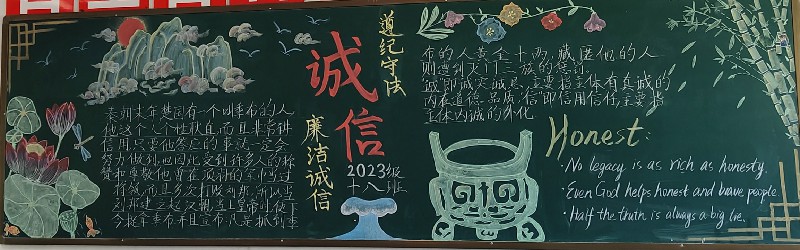 遵纪守法
诚信
廉洁诚信
2023级
十八班
秦朝末年楚国有一个叫季布的人
他这个人个性耿直,而且非常讲
信用,只要他答应的事,就一定会
努力做到,也因此受到许多人的称
赞和尊敬他曾在项羽的军中当过
将领,而且多次打败刘邦,所以当
刘邦建立起汉朝,当上皇帝时便下
令捉拿季布并且宣布凡是抓到季
布的人黄金十两,藏匿他的人
则遭到灭门三族的惩罚
诚即诚实诚恳,主要指主体有真诚的
内在道德品质,信即信用信任,主要指
主体内诚的外化
Honest:
·No legacy is as rich as honesty.
·Even God helps honest and brave people
·Half the truth is always a big lie.